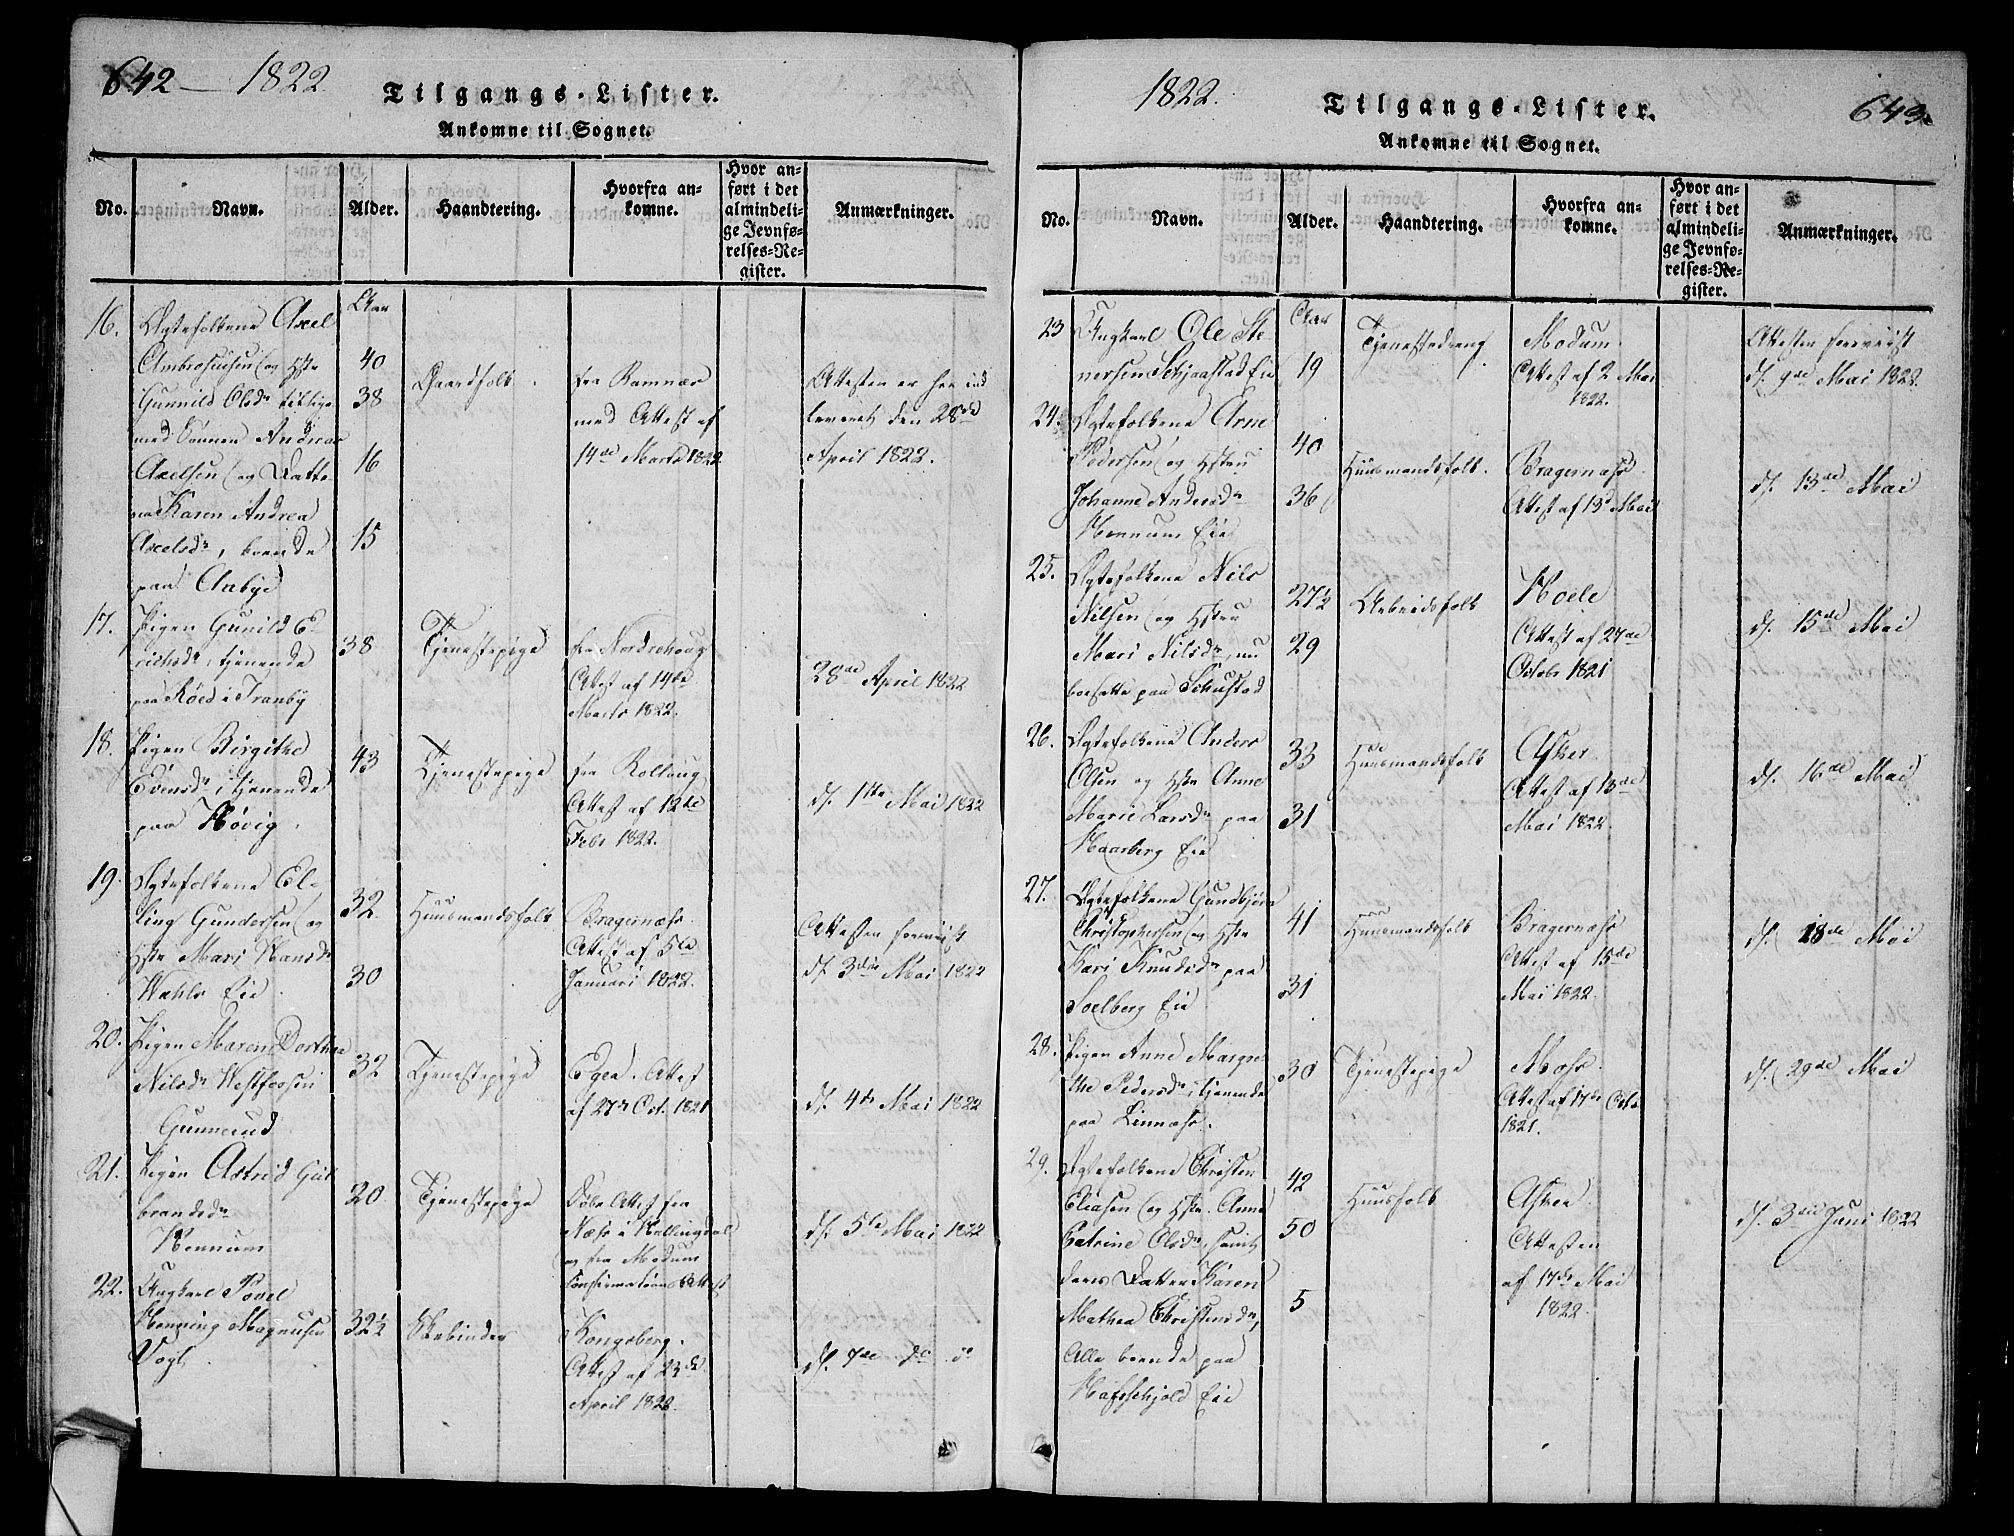 642 — 1822
Tilgangs-Lister.
Ankomne til Sognet.
No. Navn. Alder. Haandtering. Hvorfra ankomne. Hvor anført i det almindelige Jevnførelses-Register. Anmærkninger.
16. Ægtefolkene Axel Aar
Ambrosiusen og Hstr 40
Gunnild Olsdr tillige 38 Gaardfolk. fra Ramnæs Attesten er her ind
med Sønnen Andreas med Attest af leveret den 28de
Axelsen og Datte 16 14de Marts 1822 April 1822.
ren Karen Andrea
Axelsdr, boende 15
paa Aabye
17. Pigen Gunild E
richsdr, tjenende 38 Tjenestepige fra Nordrehoug
paa Røed i Tranby Attest af 14de 28de April 1822
Marts 1822.
18. Pigen Birgithe
Evensdr, tjenende 43 Tjenestepige fra Rollaug
paa Høvig. Attest af 12te d. 1ste Mai 1822
Febr 1822.
19. Ægtefolkene El-
ling Gundersen og 32 Huusmandsfolk Bragernæs.
Hstr Mari Hansdr Attest af 5te Attesten foreviist
Wahls Eie. 30 Januari 1822. d. 3die Mai 1822
20. Pigen Maren Dorthea
Nilsdr Westfossen 32 Tjenestepige Eger. Attest
Gunnerud af 27de Oct. 1821 d. 4de Mai 1822
21. Pigen Astrid Gul
brandsdr 20 Tjenestepige Døbe Attest fra
Hennum Næss i Hallingdal d. 5te Mai 1822
og fra Modum
Confirmations Attest
22. Ungkarl Povel
Henning Magnusen 32½ Kongsberg.
Vogt. Attest af 23de d. 7de do do
April 1822.
1822.
Tilgangs-Lister. 643.
Ankomne til Sognet.
No. Navn. Alder. Haandtering. Hvorfra ankomne. Hvor anført i det almindelige Jevnførelses-Register. Anmærkninger.
23 Ungkarl Ole Ste Aar Tjenestedreng Modum. Attesten foreviist
nersen Schjaastad Eie 19 Attest af 2 Mai d. 9de Mai 1822.
1822.
24. Ægtefolkene Arne
Pedersen og Hstru 40 Huusmandsfolk. Bragernæs. d. 13de Mai
Johanne Andersdr 36 Attest af 13d Mai
Hennum Eie
25. Ægtefolkene Nils
Nilsen og Hstru 27½ Arbeidsfolk Hoele d. 15de Mai
Mari Nilsdr, nu 29 Attest af 27de
bosatte paa Octobr 1821
26. Ægtefolkene Anders
Olsen og Hstr Anne 33 Huusmandsfolk Asker. d. 16de Mai
Marie Larsdr paa 31 Attest af 13de
Haarberg Eie Mai 1822.
27. Ægtefolkene Gundbjørn
Christophersen og Hstr 41 Huusmandsfolk Bragernæs d. 18de Mai
Kari Knudsdr paa 31 Attest af 15de
Soelberg Eie Mai 1822.
28. Pigen Anne Margre
the Pedersdr, tjenende 30 Tjenestepige Moss. d. 29de Mai
paa Linnæs. Attest af 17de Octb
1821.
29. Ægtefolkene Christen
Eliasen og Hstr. Anne 42 Huusfolk Asker d. 3die Juni 1822
Catrine Olsdr, samt 50 Attesten
deres Datter Karen af 17de Mai
Mathea Christensdr, 5 1822.
Alle boende paa
Eie